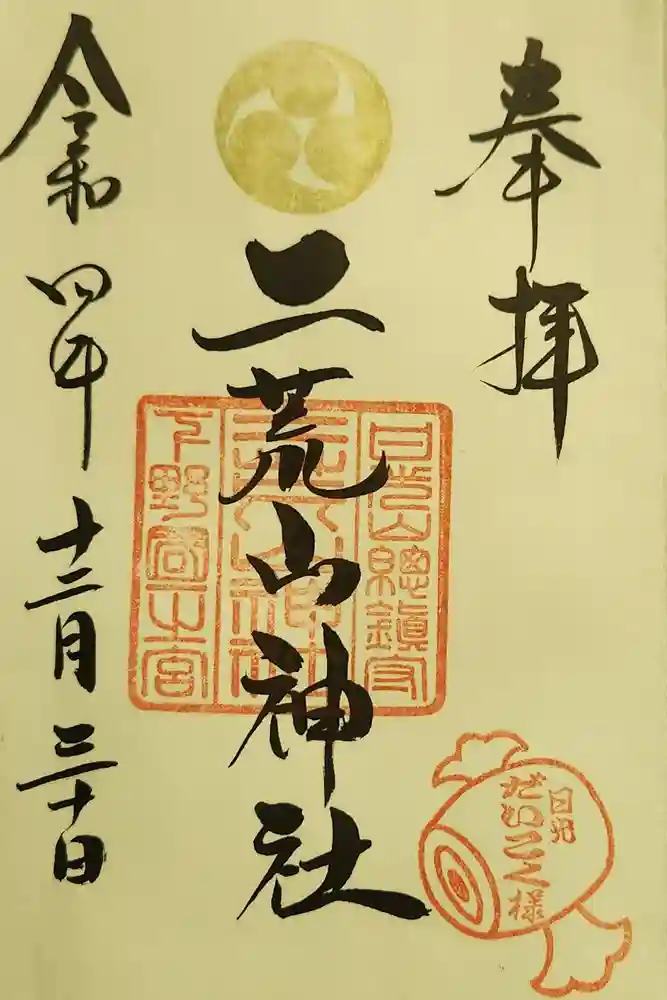 奉拝
二荒山神社
日光山總鎮守
下野國一之宮
令和四年十二月三十日
日光
だいこく様